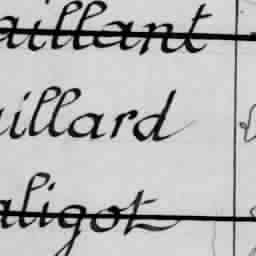 aillant
aillard
aligot